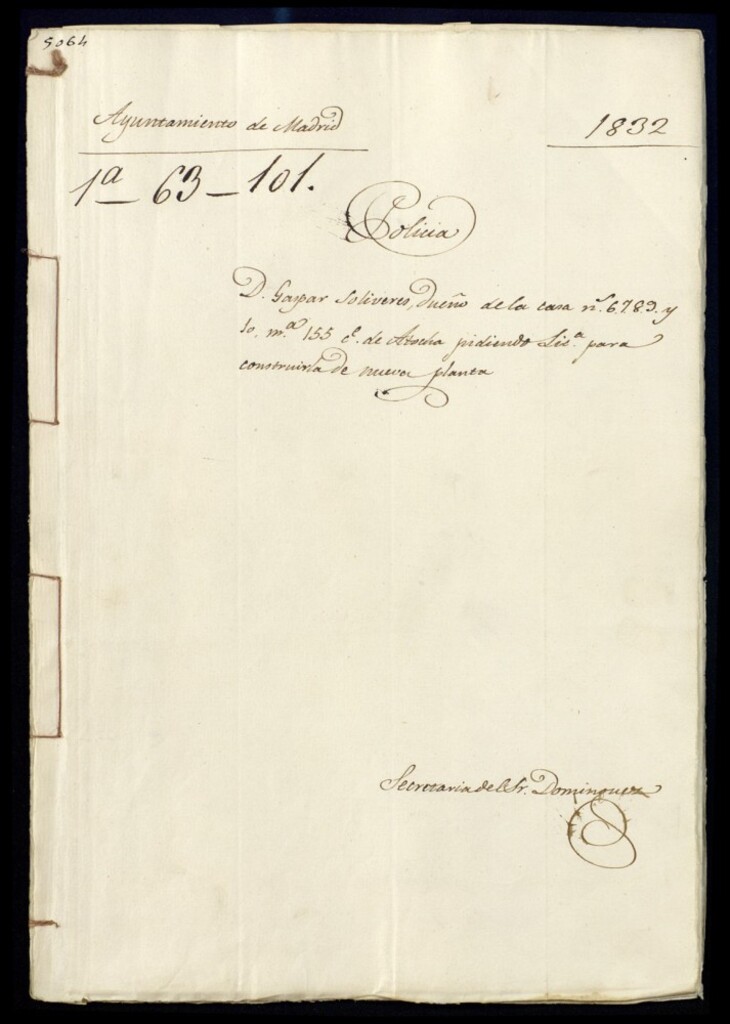 5064
Ayuntamiento de Madrid
1832
1ª - 63 - 101.
Policia
D. Gaspar Soliveres, dueño de la casa nˢ. 6.7.8.9. y
10, m.ª 155 c.ᵉ de Atocha pidiendo Lic.ª para
construirla de nueva planta
Secretaria del Sr. Dominguez